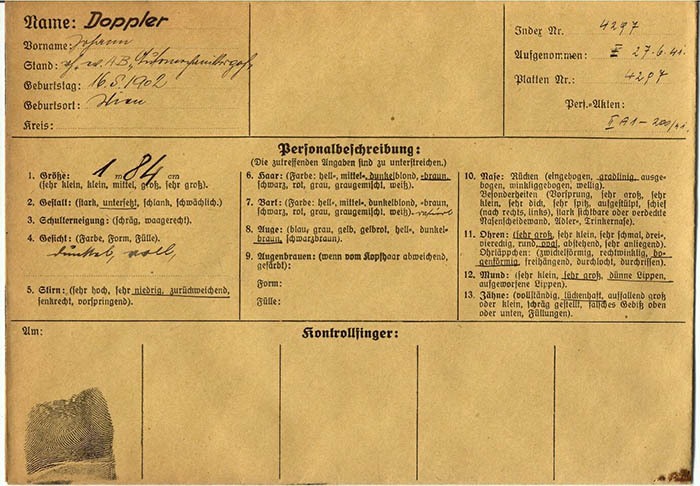 Name: Doppler
Vorname: Johann
Stand:
Geburtstag: 16.5.1902
Geburtsort: Wien
Kreis:
Index Nr. 4297
Aufgenommen: 27.6.41.
Platten Nr.: 4297
Pers.-Akten:
II A1-200/41.
Personalbeschreibung:
(Die zutreffenden Angaben sind zu unterstreichen.)
1. Größe: 1 m 84 cm
(sehr klein, klein, mittel, groß, sehr groß).
2. Gestalt: (stark, untersetzt, schlank, schwächlich).
3. Schulterneigung: (schräg, waagerecht).
4. Gesicht: (Farbe, Form, Fülle).
dunkel, voll,
5. Stirn: (sehr hoch, sehr niedrig, zurückweichend,
senkrecht, vorspringend).
6. Haar: (Farbe: hell-, mittel-, dunkelblond, -braun,
schwarz, rot, grau, graugemischt, weiß).
7. Bart: (Farbe: hell-, mittel-, dunkelblond, -braun,
schwarz, rot, grau, graugemischt, weiß). rasiert
8. Auge: (blau, grau, gelb, gelbrot, hell-, dunkel-
braun, schwarzbraun).
9. Augenbrauen: (wenn vom Kopfhaar abweichend,
gefärbt):
Form:
Fülle:
10. Nase: Rücken (eingebogen, gradlinig, ausge-
bogen, winkliggebogen, wellig).
Besonderheiten (Vorsprung, sehr groß, sehr
klein, sehr dick, sehr spitz, aufgestülpt, schief
(nach rechts, links), stark sichtbare oder verdeckte
Nasenscheidewand, Adler-, Trinkernase).
11. Ohren: (sehr groß, sehr klein, sehr schmal, drei-,
viereckig, rund, oval, abstehend, sehr anliegend).
Ohrläppchen: (zwickelförmig, rechtwinklig, bo-
genförmig, freihängend, durchlocht, durchrissen).
12. Mund: (sehr klein, sehr groß, dünne Lippen,
aufgeworfene Lippen).
13. Zähne: (vollständig, lückenhaft, auffallend groß
oder klein, schräg gestellt, falsches Gebiß oben
oder unten, Füllungen).
Am:
Kontrollfinger: